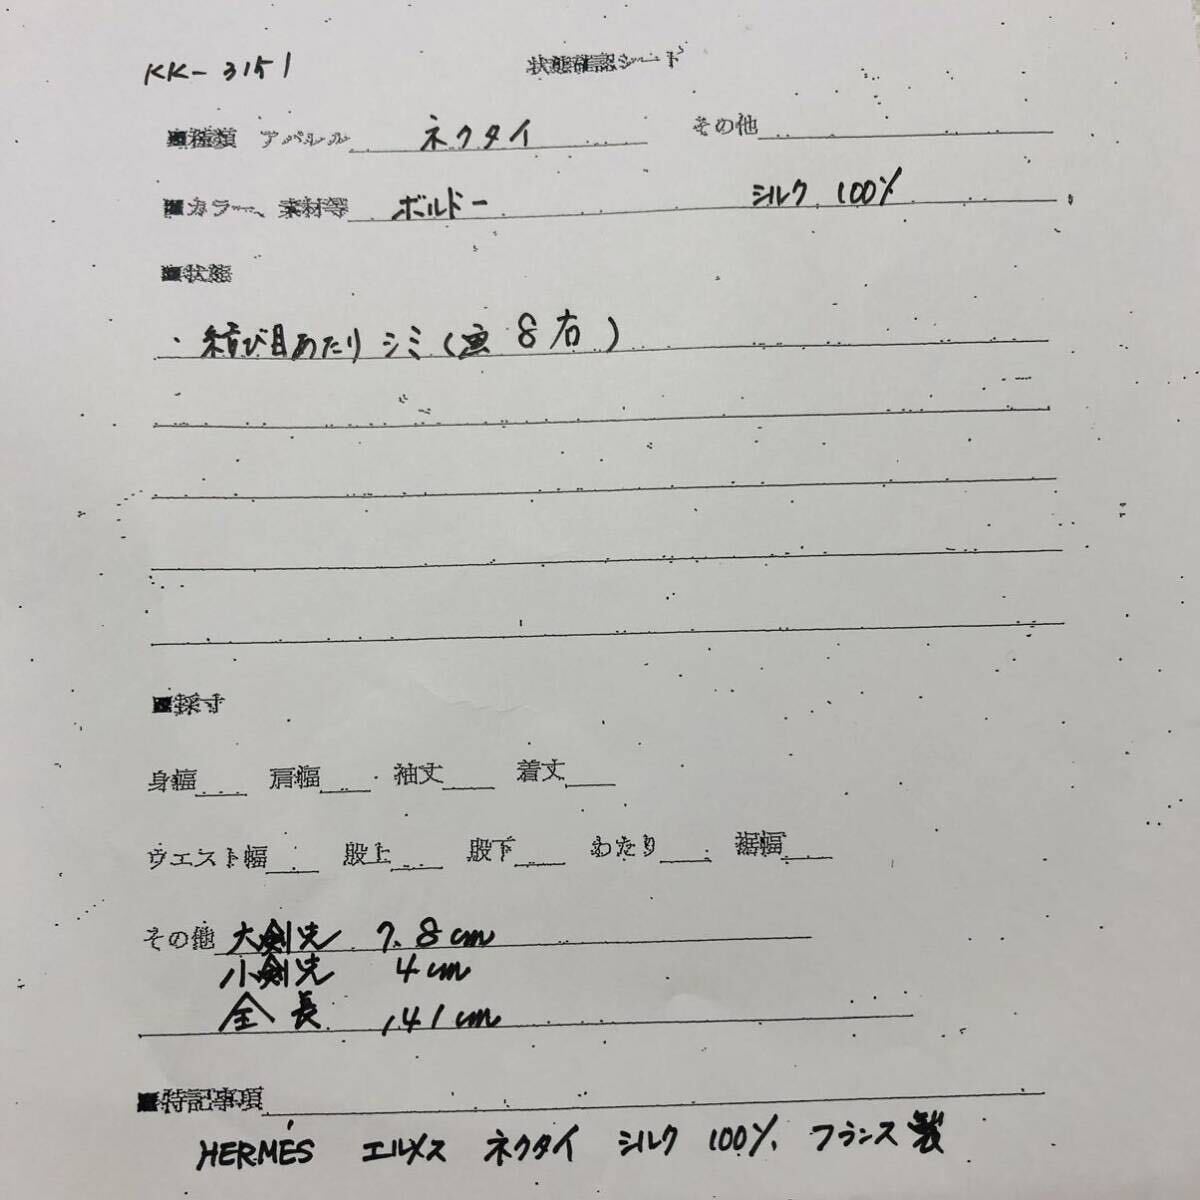 KK-3151
状態確認シート
■種類 アパレル ネクタイ その他
■カラー、素材等 ボルドー シルク 100%
■状態
・結び目あたり シミ(画 8 右)
■採寸
身幅 肩幅 袖丈 着丈
ウエスト幅 股上 股下 わたり 裾幅
その他 大剣先 7.8cm
小剣先 4cm
全長 141cm
■特記事項
HERMÉS エルメス ネクタイ シルク 100% フランス製